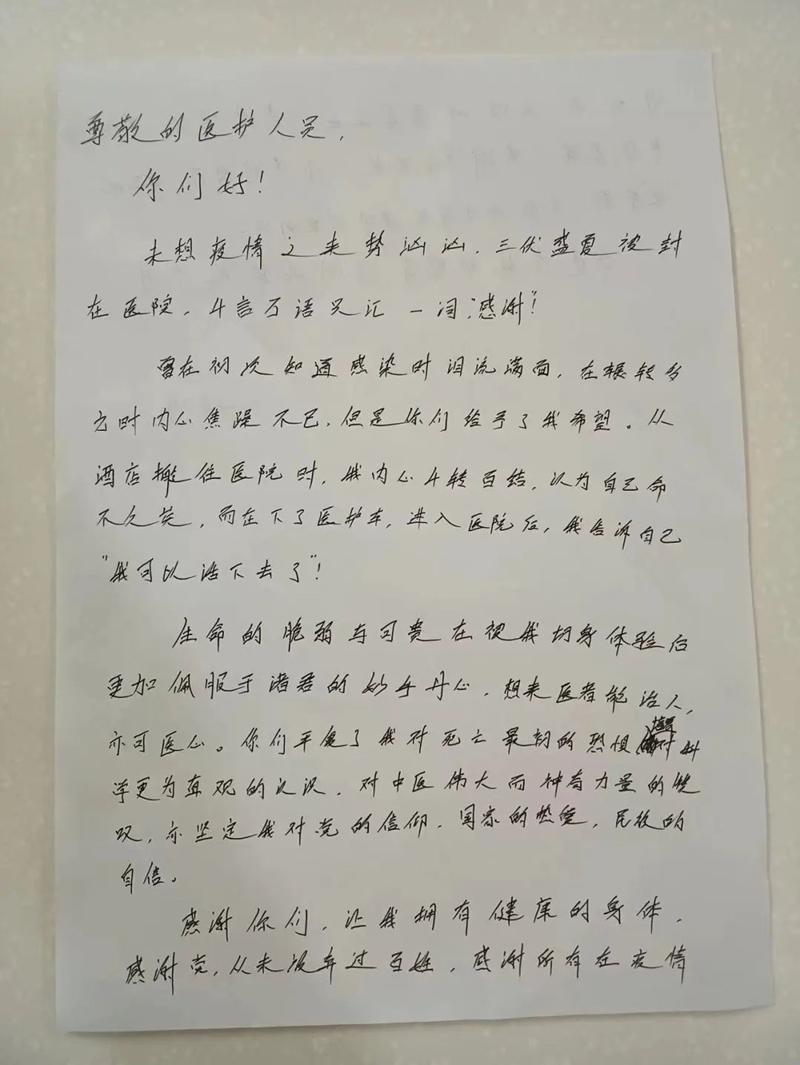 尊敬的医护人员,
你们好!
未想疫情之来势汹汹,三伏盛夏被封
在医院,千言万语只汇一词"感谢"!
曾在初次知道感染时泪流满面,在辗转多
方时内心焦躁不已,但是你们给予了我希望。从
酒店搬住医院时,我内心千转百结,认为自己命
不久矣,而在下了医护车,进入医院后,我告诉自己
"我可以活下去了"!
生命的脆弱与可贵在被我切身体验后
更加佩服于诸君的妙手丹心,想来医者能治人,
亦可医心。你们平复了我对死亡最初的恐惧 对科
学更为直观的认识,对中医伟大而神奇力量的赞
叹,亦坚定我对党的信仰,国家的热爱,民族的
自信。
感谢你们,让我拥有健康的身体,
感谢党,从未放弃过百姓,感谢所有在疫情